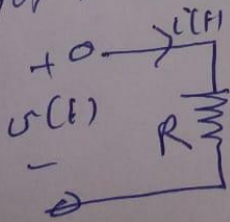 i(t)
+
v(t)
R
-